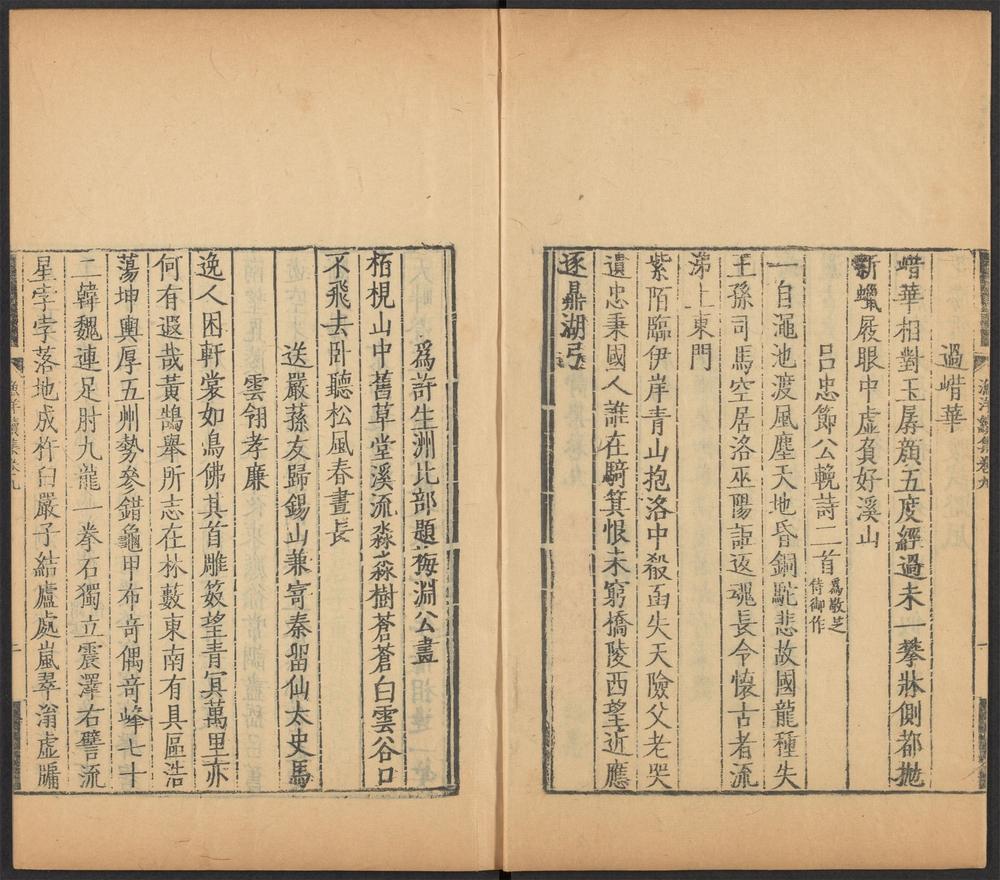 漁洋續集卷九
過㟙華
㟙華相對玉孱顔五度經過未一攀牀側都拋
新蠟屐眼中虛負好溪山
呂忠節公輓詩二首爲敬芝侍御作
一自澠池渡風塵天地昏銅駝悲故國龍種失
王孫司馬空居洛巫陽詎返魂長令懷古者流
涕上東門
紫陌臨伊岸青山抱洛中殽函失天險父老哭
遺忠秉國人誰在騎箕恨未窮橋陵西望近應
逐鼎湖弓
爲許生洲比部題梅淵公畫
栢梘山中舊草堂溪流淼淼樹蒼蒼白雲谷口
不飛去卧聽松風春晝長
送嚴蓀友歸錫山兼寄秦留仙太史馬
雲翎孝廉
逸人困軒裳如鳥佛其首雕笯望青冥萬里亦
何有遐哉黃鵠舉所志在林藪東南有具區浩
蕩坤輿厚五州勢參錯龜甲布奇偶奇峰七十
二韓魏連足肘九龍一拳石獨立震澤右譬流
星孛孛落地成杵臼嚴子結廬處嵐翠滃虛牖
漁洋續集卷九